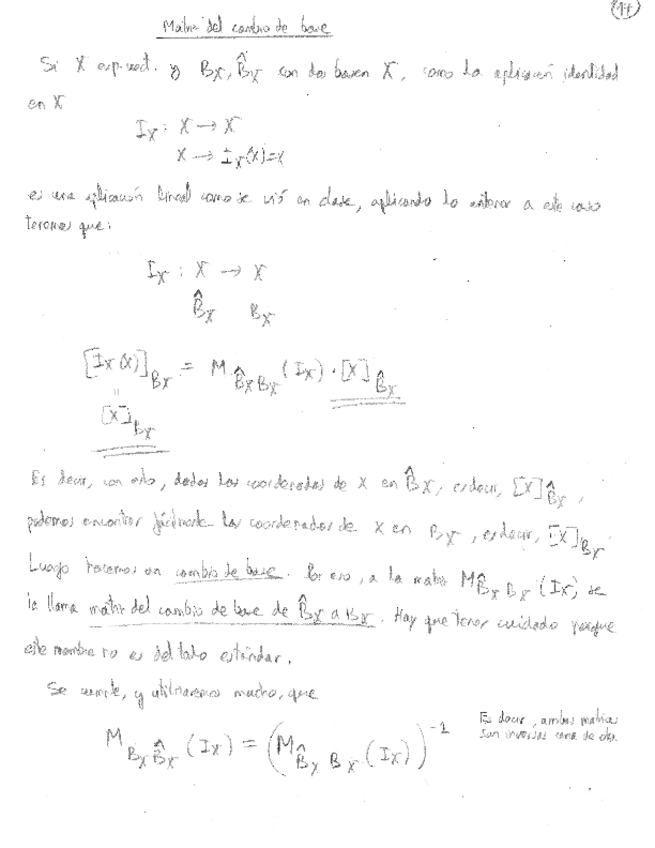 17
Matriz del cambio de base
Si X esp. vect. y B_X, B̂_X son dos bases en X, como la aplicación identidad
en X
I_X : X → X
x → I_X(x)=x
es una aplicación lineal como se vió en clase, aplicando lo anterior a este caso
tenemos que:
I_X : X → X
B̂_X B_X
[I_X(x)]_{B_X} = M_{B̂_X B_X} (I_X) · [x]_{B̂_X}
=
[x]_{B_X}
Es decir, con esto, dadas las coordenadas de x en B̂_X, es decir, [x]_{B̂_X},
podemos encontrar fácilmente las coordenadas de x en B_X, es decir, [x]_{B_X}
Luego hacemos un cambio de base. Por eso, a la matriz M_{B̂_X B_X} (I_X) se
la llama matriz del cambio de base de B̂_X a B_X. Hay que tener cuidado porque
este nombre no es del todo estándar.
Se cumple, y utilizaremos mucho, que
M_{B_X B̂_X} (I_X) = (M_{B̂_X B_X} (I_X))^{-1}
Es decir, ambas matrices
son inversas una de otra.